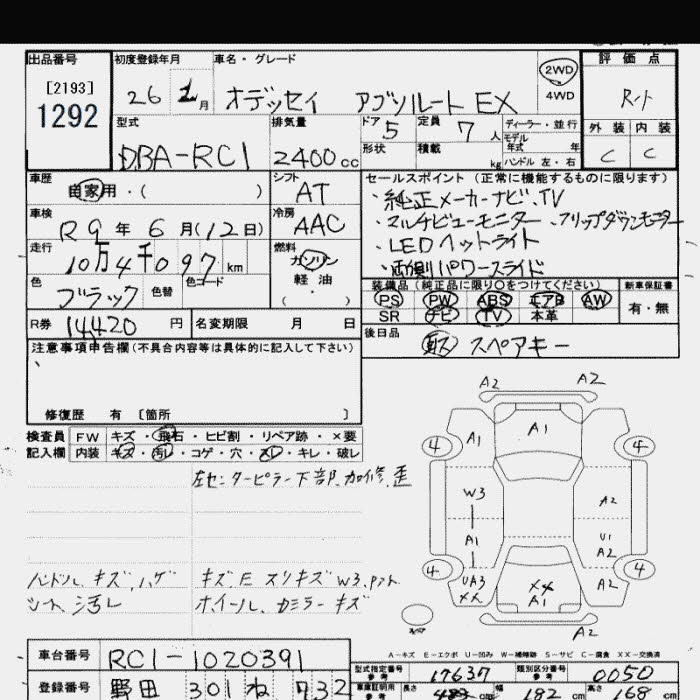 出品番号
[2193]
1292
初度登録年月
26 月
車名・グレード
オデッセイ アブソルート EX
2WD
4WD
評価点
R-ト
外装 内装
C C
型式
DBA-RC1
排気量
2400cc
ドア 5
形状
定員 7人
積載 kg
ディーラー・並行
モデル年式 年
ハンドル 左・右
車歴
自家用・( )
シフト
AT
車検
R9年6月(12日)
冷房
AAC
走行
10万4千097km
燃料
ガソリン
軽油
( )
色
ブラック
色替
色コード
R券 14420円
名変期限 月 日
セールスポイント(正常に機能するものに限ります)
・純正メーカーナビ、TV
・マルチビューモニター・フリップダウンモニター
・LEDヘットライト
・両側パワースライド
装備品(純正品に限り○をつけてください)
PS PW ABS エアB AW
SR ナビ TV 本革
新車保証書
有・無
後日品
スペアキー
注意事項申告欄(不具合内容等は具体的に記入して下さい)
修復歴 有 〔箇所 〕
検査員記入欄
FW キズ・飛石・ヒビ割・リペア跡・×要
内装 キズ・汚レ・コゲ・穴・スレ・キレ・破レ
左センターピラー下部、加修、歪
ハンドル、キズ、ハゲ
シート、汚レ
キズ、E スリキズ W3,
ホイール、カミラーキズ
A2 A2
A1 A1
4 4
W3 A2
A1 U1
A2
4 4
UA3
XX
A2
A1
A2
スペア
A-キズ E-エクボ U-凹み W-補修跡 S-サビ C-腐食 XX-交換済
車台番号
RC1-1020391
登録番号
野田 301 ね 732
型式指定番号
参考
17637
類別区分番号
参考
0050
車庫証明用
参考
長さ 483cm
幅 182cm
高さ 168cm